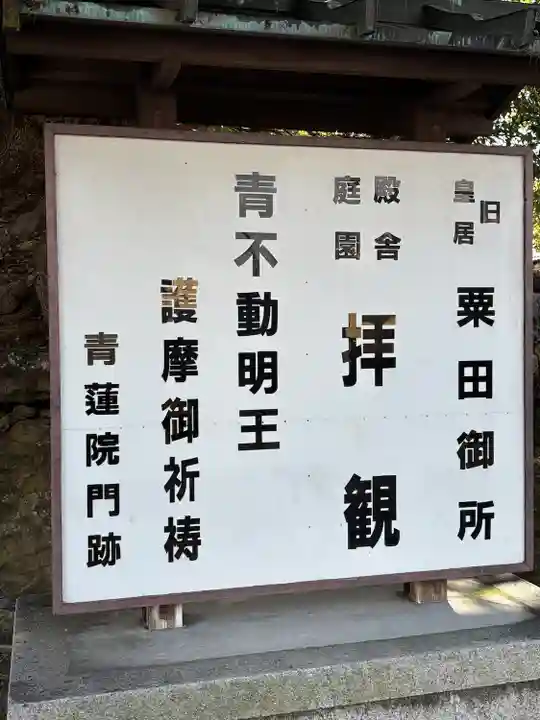 旧皇居 粟田御所
殿舎庭園 拝観
青不動明王
護摩御祈祷
青蓮院門跡